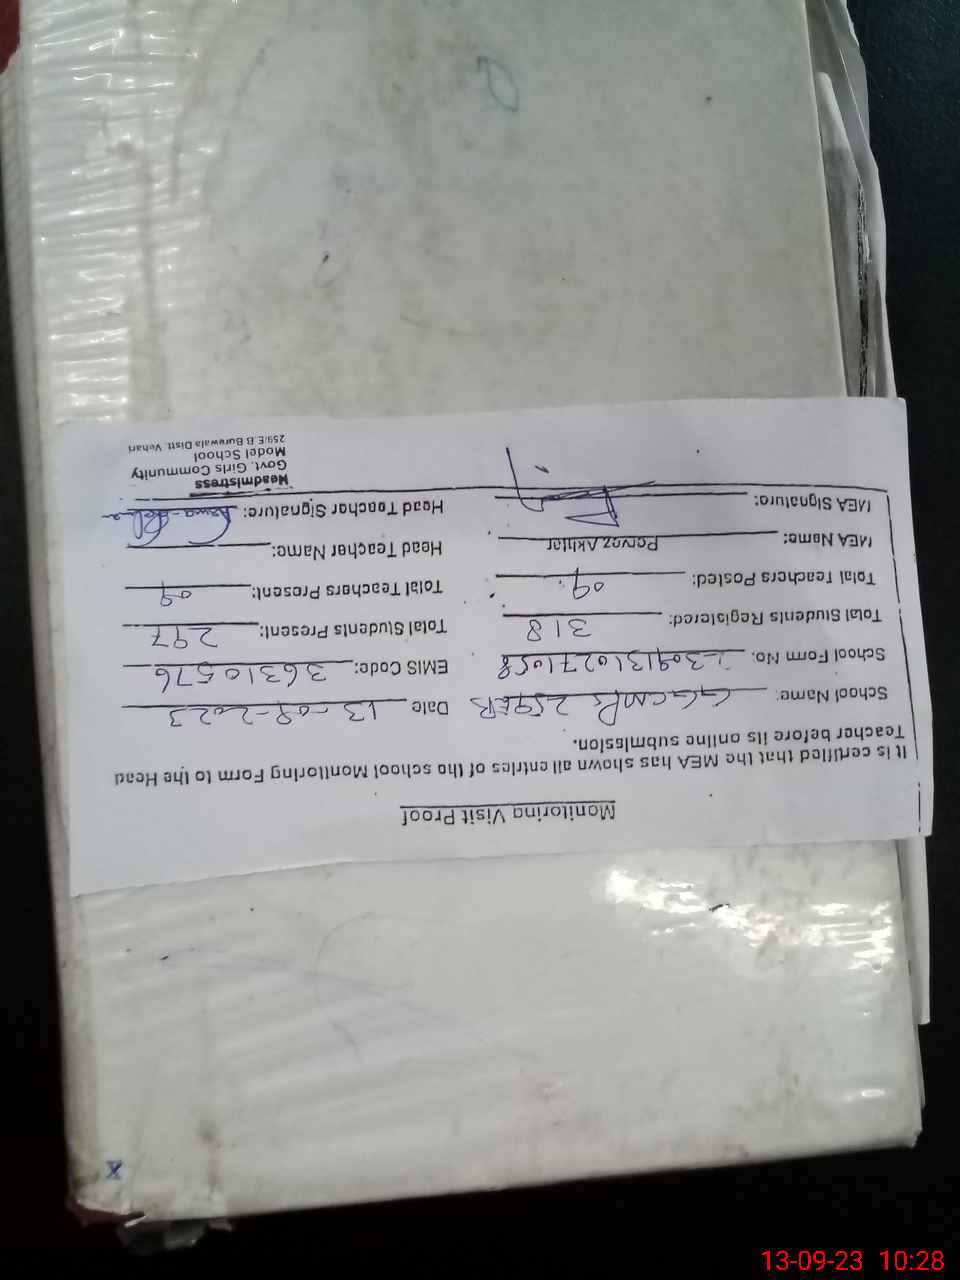 Monitoring Visit Proof
It is certified that the MEA has shown all entries of the school Monitoring Form to the Head
Teacher before its online submission.
School Name: GGCMPS 259EB Date 13-09-2023
School Form No: 23091310271058 EMIS Code: 36310576
Total Students Registered: 318 Total Students Present: 297
Total Teachers Posted: 09 Total Teachers Present: 09
MEA Name: Pervez Akhtar Head Teacher Name:
MEA Signature: Head Teacher Signature:
Headmistress
Govt. Girls Community
Model School
259/E.B Burewala Distt. Vehari
X
13-09-23 10:28